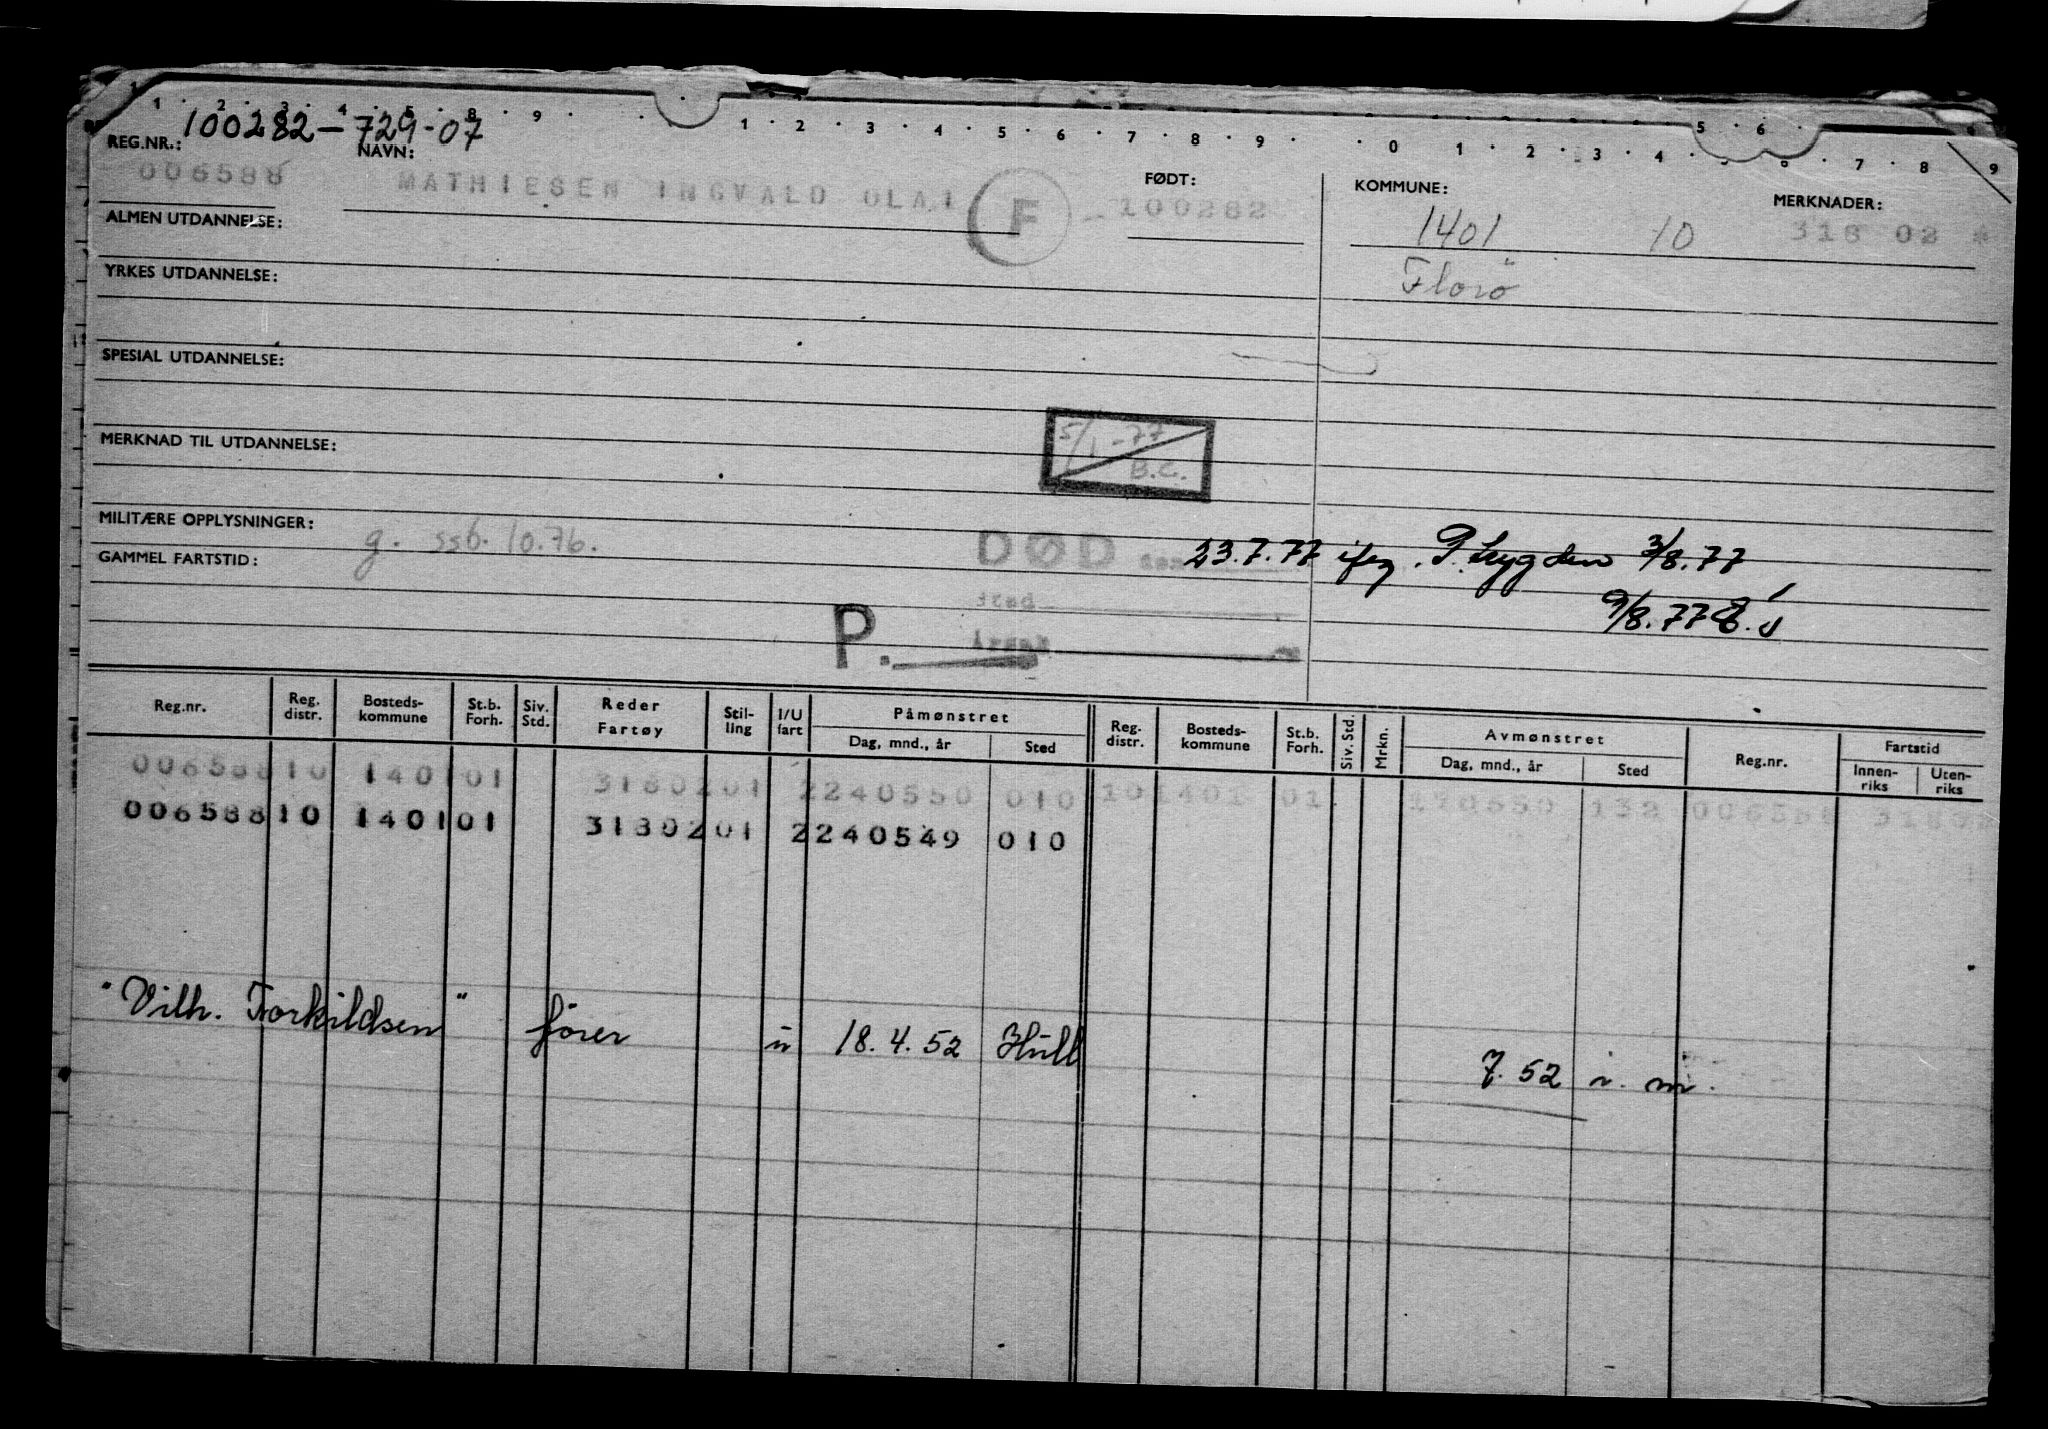 1 · 2 · 3 · 4 · 5 · 8 · 9 · 1 · 2 · 3 · 4 · 5 · 6 · 7 · 8 · 9 · · 0 · 1 · 2 · 3 · 4 · 5 · 6 · 7 · 8 · 9
REG.NR.: 100282-729-07 NAVN: FØDT: KOMMUNE: MERKNADER:
006588 MATHIESEN INGVALD OLAI F 100282 1401 10 318 02 *
ALMEN UTDANNELSE:
Florö
YRKES UTDANNELSE:
SPESIAL UTDANNELSE:
5/1-77
B.C.
MERKNAD TIL UTDANNELSE:
MILITÆRE OPPLYSNINGER: g. ssb. 10.76.
DØD den 23.7.77 iføg. P. trygden 3/8.77
GAMMEL FARTSTID:
Sted
9/8.77
P. Årsak
Reg.nr. Reg. distr. Bosteds-kommune St.b. Forh. Siv. Std. Reder Fartøy Stil-ling I/U fart Påmønstret Dag, mnd., år Sted Reg. distr. Bosteds-kommune St.b. Forh. Siv. Std. Mrkn. Avmønstret Dag, mnd., år Sted Reg.nr. Fartstid Innen-riks Uten-riks
006588 10 1401 01 31802 01 2 240550 010 10 1401 01. 170550 132 006588
006588 10 1401 01 31802 01 2 240549 010
"Vilh. Torkildsen" förer u 18.4.52 Hull 7.52 i. m.